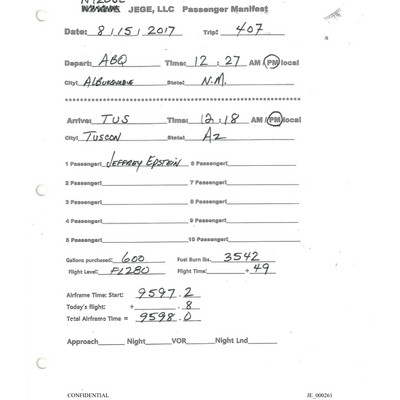 JEGE, LLC Passenger Manifest
Date: 8/15/2017 Trip: 407
Depart: ABQ Time: 12:27 AM / PM local
City: ALBUQUERQUE State: N.M.
Arrive: TUS Time: 12:18 AM / PM local
City: TUSCON State: AZ
1 Passenger: JEFFREY EPSTEIN 6 Passenger:
2 Passenger: 7 Passenger:
3 Passenger: 8 Passenger:
4 Passenger: 9 Passenger:
5 Passenger: 10 Passenger:
Gallons purchased: 600 Fuel Burn lbs. 3542
Flight Level: FL280 Flight Time: + 49
Airframe Time: Start: 9597.2
Today's flight: + .8
Total Airframe Time = 9598.0
Approach Night VOR Night Lnd
CONFIDENTIAL JE_000261